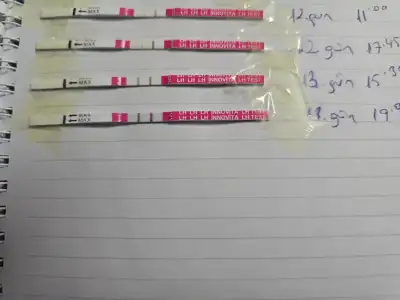 MAX LH LH LH INNOVITA LH TEST 12.gün 11:00
MAX LH LH LH INNOVITA LH TEST gün 17:45
MAX LH LH LH INNOVITA LH TEST 13 gün 15:3
MAX LH LH LH INNOVITA LH TEST gün 19